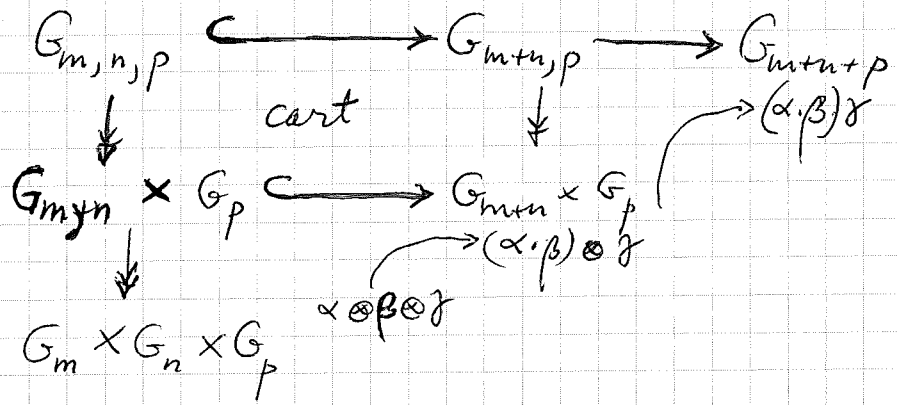 G_{m,n,p} ↪ G_{m+n,p} → G_{m+n+p}
cart (α·β)γ
G_{m,n} × G_p ↪ G_{m+n} × G_p
(α·β) ⊗ γ
α ⊗ β ⊗ γ
G_m × G_n × G_p